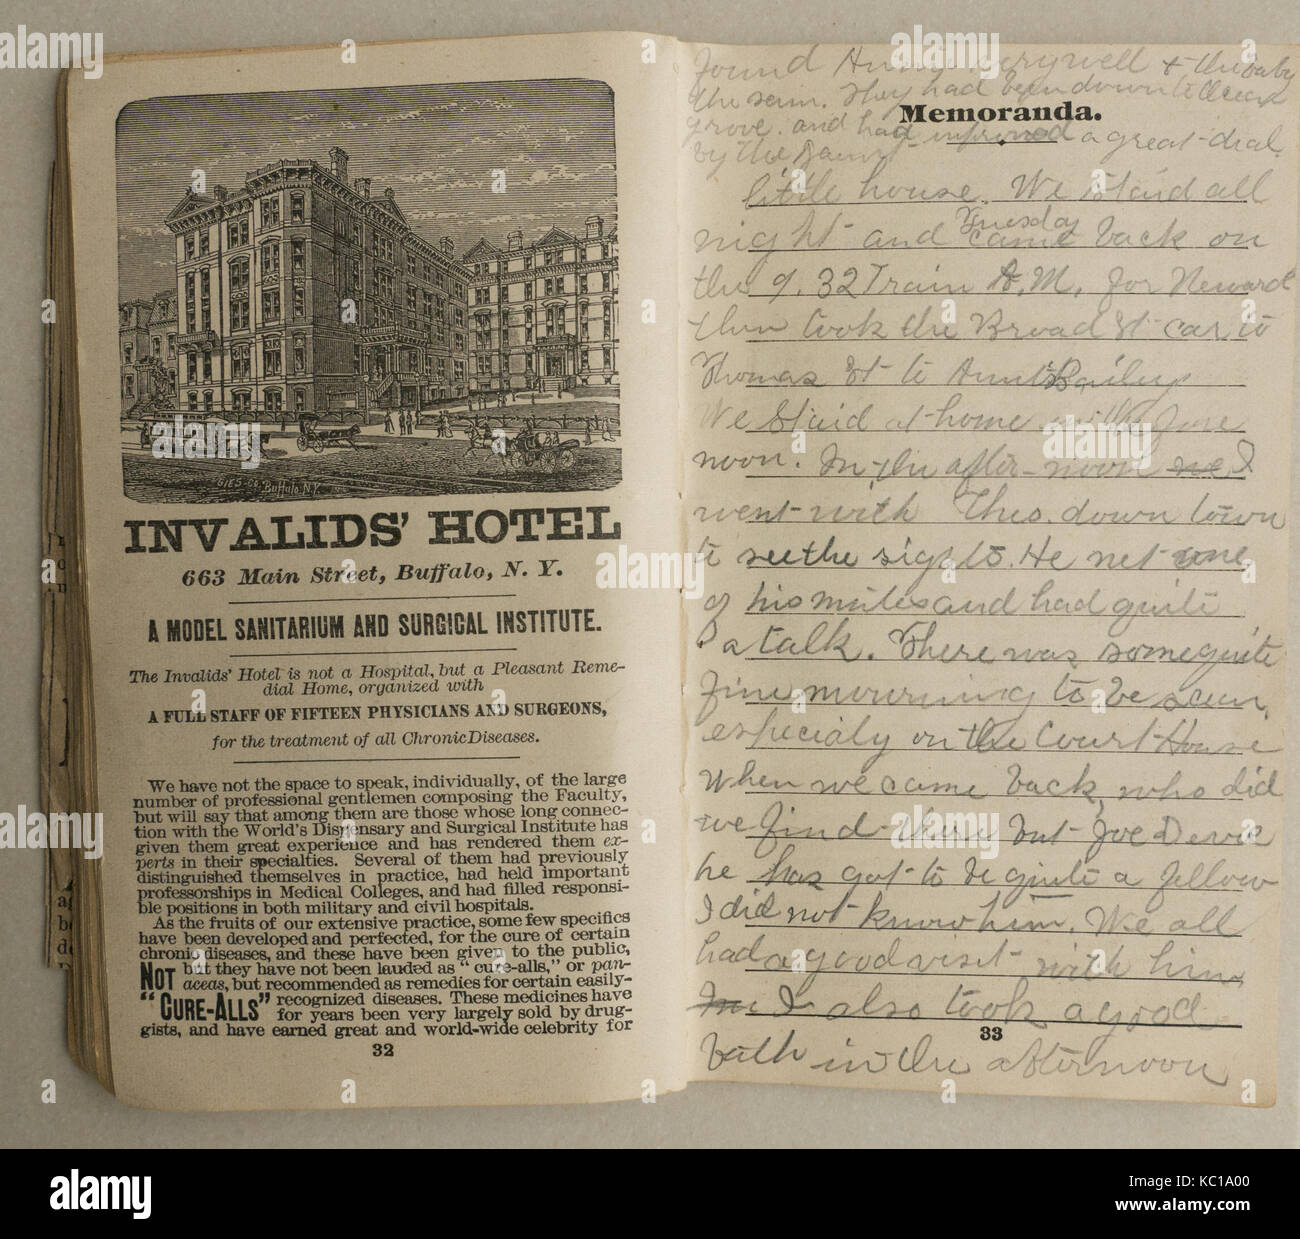 GIES & CO. Buffalo, N.Y.
INVALIDS' HOTEL
663 Main Street, Buffalo, N. Y.
A MODEL SANITARIUM AND SURGICAL INSTITUTE.
The Invalids' Hotel is not a Hospital, but a Pleasant Reme-
dial Home, organized with
A FULL STAFF OF FIFTEEN PHYSICIANS AND SURGEONS,
for the treatment of all Chronic Diseases.
We have not the space to speak, individually, of the large
number of professional gentlemen composing the Faculty,
but will say that among them are those whose long connec-
tion with the World's Dispensary and Surgical Institute has
given them great experience and has rendered them ex-
perts in their specialties. Several of them had previously
distinguished themselves in practice, had held important
professorships in Medical Colleges, and had filled responsi-
ble positions in both military and civil hospitals.
As the fruits of our extensive practice, some few specifics
have been developed and perfected, for the cure of certain
chronic diseases, and these have been given to the public,
NOT but they have not been lauded as "cure-alls," or pan-
aceas, but recommended as remedies for certain easily-
"CURE-ALLS" recognized diseases. These medicines have
for years been very largely sold by drug-
gists, and have earned great and world-wide celebrity for
32
found Annie very well & the baby
the same. They had been down to Ocean
Memoranda.
grove. and had improved a great deal
by the
little house. We staid all
night and Tuesday came back on
the 9.32 Train A.M. for Newark
then took the Broad St car to
Thomas St to Aunt Bailey
We staid at home in the fore
noon. In the after-noon we I
went with Theo. down town
to see the sights. He met one
of his mates and had quite
a talk. There was some quite
fine mourning to be seen,
especialy on the Court House
When we came back, who did
we find there but Joe Devoe
he has got to be quite a fellow
I did not know him. We all
had a good visit with him
I also took a good
33
bath in the afternoon
alamy
Image ID: KC1A00
www.alamy.com